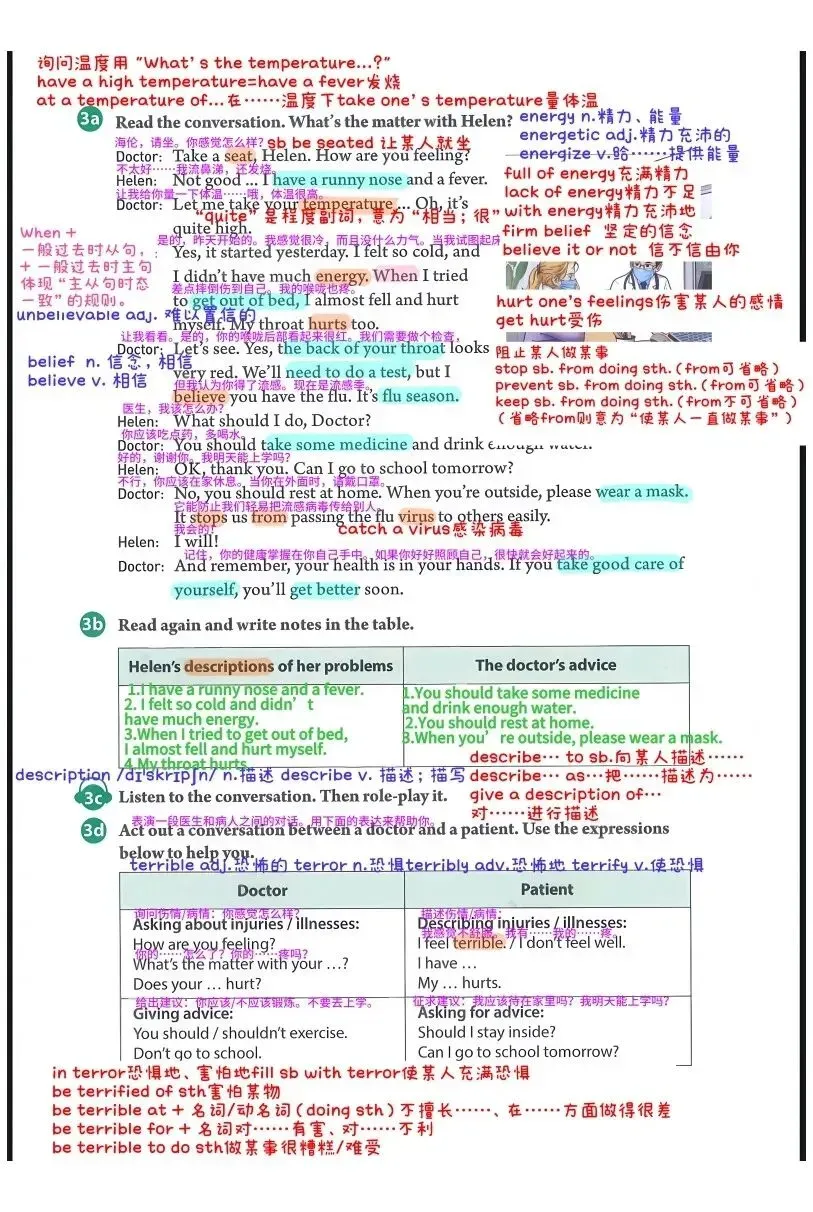 询问温度用 "What's the temperature...?"
have a high temperature=have a fever发烧
at a temperature of...在……温度下take one's temperature量体温
3a Read the conversation. What's the matter with Helen?
energy n.精力、能量
energetic adj.精力充沛的
energize v.给……提供能量
海伦，请坐。你感觉怎么样?
sb be seated 让某人就坐
Doctor: Take a seat, Helen. How are you feeling?
不太好……我流鼻涕，还发烧。
Helen: Not good ... I have a runny nose and a fever.
让我给你量一下体温……哦，体温很高。
Doctor: Let me take your temperature ... Oh, it's
"quite" 是程度副词，意为 "相当；很"
quite high.
full of energy充满精力
lack of energy精力不足
with energy精力充沛地
firm belief 坚定的信念
believe it or not 信不信由你
When +
一般过去时从句，
+ 一般过去时主句
体现 "主从句时态
一致" 的规则。
是的，昨天开始的。我感觉很冷，而且没什么力气。当我试图起床
Yes, it started yesterday. I felt so cold, and
I didn't have much energy. When I tried
差点摔倒伤到自己。我的喉咙也疼。
to get out of bed, I almost fell and hurt
myself. My throat hurts too.
hurt one's feelings伤害某人的感情
get hurt受伤
unbelievable adj. 难以置信的
让我看看。是的，你的喉咙后部看起来很红。我们需要做个检查，
Doctor: Let's see. Yes, the back of your throat looks
very red. We'll need to do a test, but I
但我认为你得了流感。现在是流感季。
believe you have the flu. It's flu season.
belief n. 信念，相信
believe v. 相信
阻止某人做某事
stop sb. from doing sth.（from可省略）
prevent sb. from doing sth.（from可省略）
keep sb. from doing sth.（from不可省略）
（省略from则意为 "使某人一直做某事"）
医生，我该怎么办?
Helen: What should I do, Doctor?
你应该吃点药，多喝水。
Doctor: You should take some medicine and drink enough water.
好的，谢谢你。我明天能上学吗?
Helen: OK, thank you. Can I go to school tomorrow?
不行，你应该在家休息。当你在外面时，请戴口罩。
Doctor: No, you should rest at home. When you're outside, please wear a mask.
它能防止我们轻易把流感病毒传给别人。
It stops us from passing the flu virus to others easily.
我会的!
catch a virus感染病毒
Helen: I will!
记住，你的健康掌握在你自己手中。如果你好好照顾自己，很快就会好起来的。
Doctor: And remember, your health is in your hands. If you take good care of
yourself, you'll get better soon.
3b Read again and write notes in the table.
Helen's descriptions of her problems
The doctor's advice
1.I have a runny nose and a fever.
2. I felt so cold and didn't
have much energy.
3.When I tried to get out of bed,
I almost fell and hurt myself.
4.My throat hurts
1.You should take some medicine
and drink enough water.
2.You should rest at home.
3.When you're outside, please wear a mask.
description /dɪˈskrɪpʃn/ n.描述 describe v. 描述；描写
describe… to sb.向某人描述……
describe… as…把……描述为……
give a description of…
对……进行描述
3c Listen to the conversation. Then role-play it.
表演一段医生和病人之间的对话。用下面的表达来帮助你。
3d Act out a conversation between a doctor and a patient. Use the expressions
below to help you.
terrible adj.恐怖的 terror n.恐惧terribly adv.恐怖地 terrify v.使恐惧
Doctor
Patient
询问伤情/病情：你感觉怎么样?
Asking about injuries / illnesses:
How are you feeling?
你的……怎么了? 你的……疼吗?
What's the matter with your …?
Does your … hurt?
描述伤情/病情：
Describing injuries / illnesses:
我感觉不舒服。我有……我的……疼。
I feel terrible. / I don't feel well.
I have …
My … hurts.
给出建议：你应该/不应该锻炼。不要去上学。
Giving advice:
You should / shouldn't exercise.
Don't go to school.
征求建议：我应该待在家里吗? 我明天能上学吗?
Asking for advice:
Should I stay inside?
Can I go to school tomorrow?
in terror恐惧地、害怕地fill sb with terror使某人充满恐惧
be terrified of sth害怕某物
be terrible at + 名词/动名词（doing sth）不擅长……、在……方面做得很差
be terrible for + 名词对……有害、对……不利
be terrible to do sth做某事很糟糕/难受